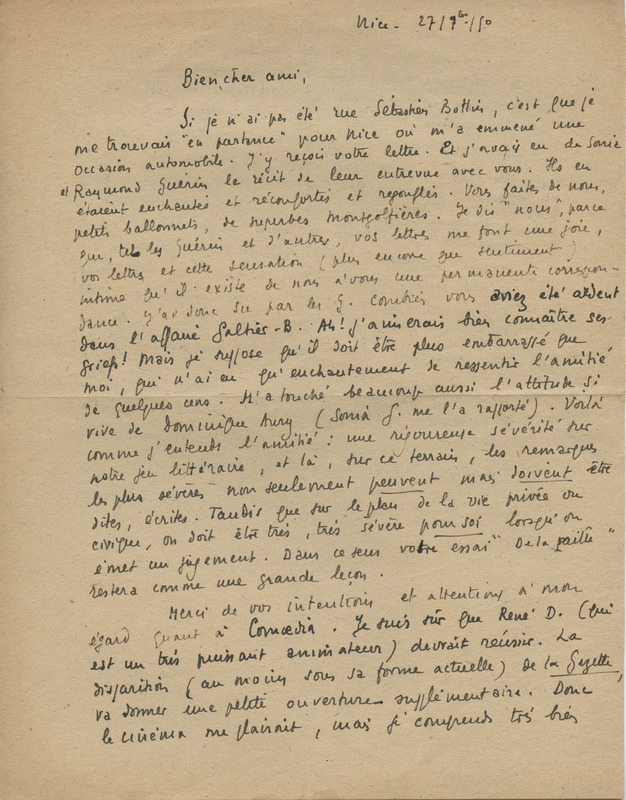 Nice - 27/7bre/50
Bien cher ami,
Si je n'ai pas été rue Sébastien Bottin, c'est que je
me trouvais "en partance" pour Nice où m'a emmené une
occasion automobile. J'y reçois votre lettre. Et j'avais eu de Sonia
et Raymond Guérin le récit de leur entrevue avec vous. Ils en
étaient enchantés et réconfortés et regonflés. Vous faites de nous,
petits ballonnets, de superbes montgolfières. Je dis "nous", parce
que, tels les Guérin et d'autres, vos lettres me font une joie,
vos lettres et cette sensation (plus encore que sentiment)
intime qu'il existe de nous à vous une permanente correspon-
dance. J'ai donc su par les G. combien vous aviez été ardent
dans l'affaire Galtier-B. Ah! J'aimerais bien connaître ses
griefs! Mais je suppose qu'il doit être plus embarrassé que
moi, qui n'ai eu qu'enchantement de ressentir l'amitié
de quelques uns. M'a touché beaucoup aussi l'attitude si
vive de Dominique Aury (Sonia G. me l'a rapporté). Voilà
comme j'entends l'amitié : une rigoureuse sévérité sur
notre jeu littéraire, et là, sur ce terrain, les remarques
les plus sévères non seulement peuvent mais doivent être
dites, écrites. Tandis que sur le plan de la vie privée ou
civique, on doit être très, très sévère pour soi lorsqu'on
émet un jugement. Dans ce sens votre essai "De la paille"
restera comme une grande leçon.
Merci de vos intentions et attentions à mon
égard quant à Comœdia. Je suis sûr que René D. (qui
est un très puissant animateur) devrait réussir. La
disparition (au moins sous sa forme actuelle) de la Gazette,
va donner une petite ouverture supplémentaire. Donc
le cinéma me plairait, mais je comprends très bien